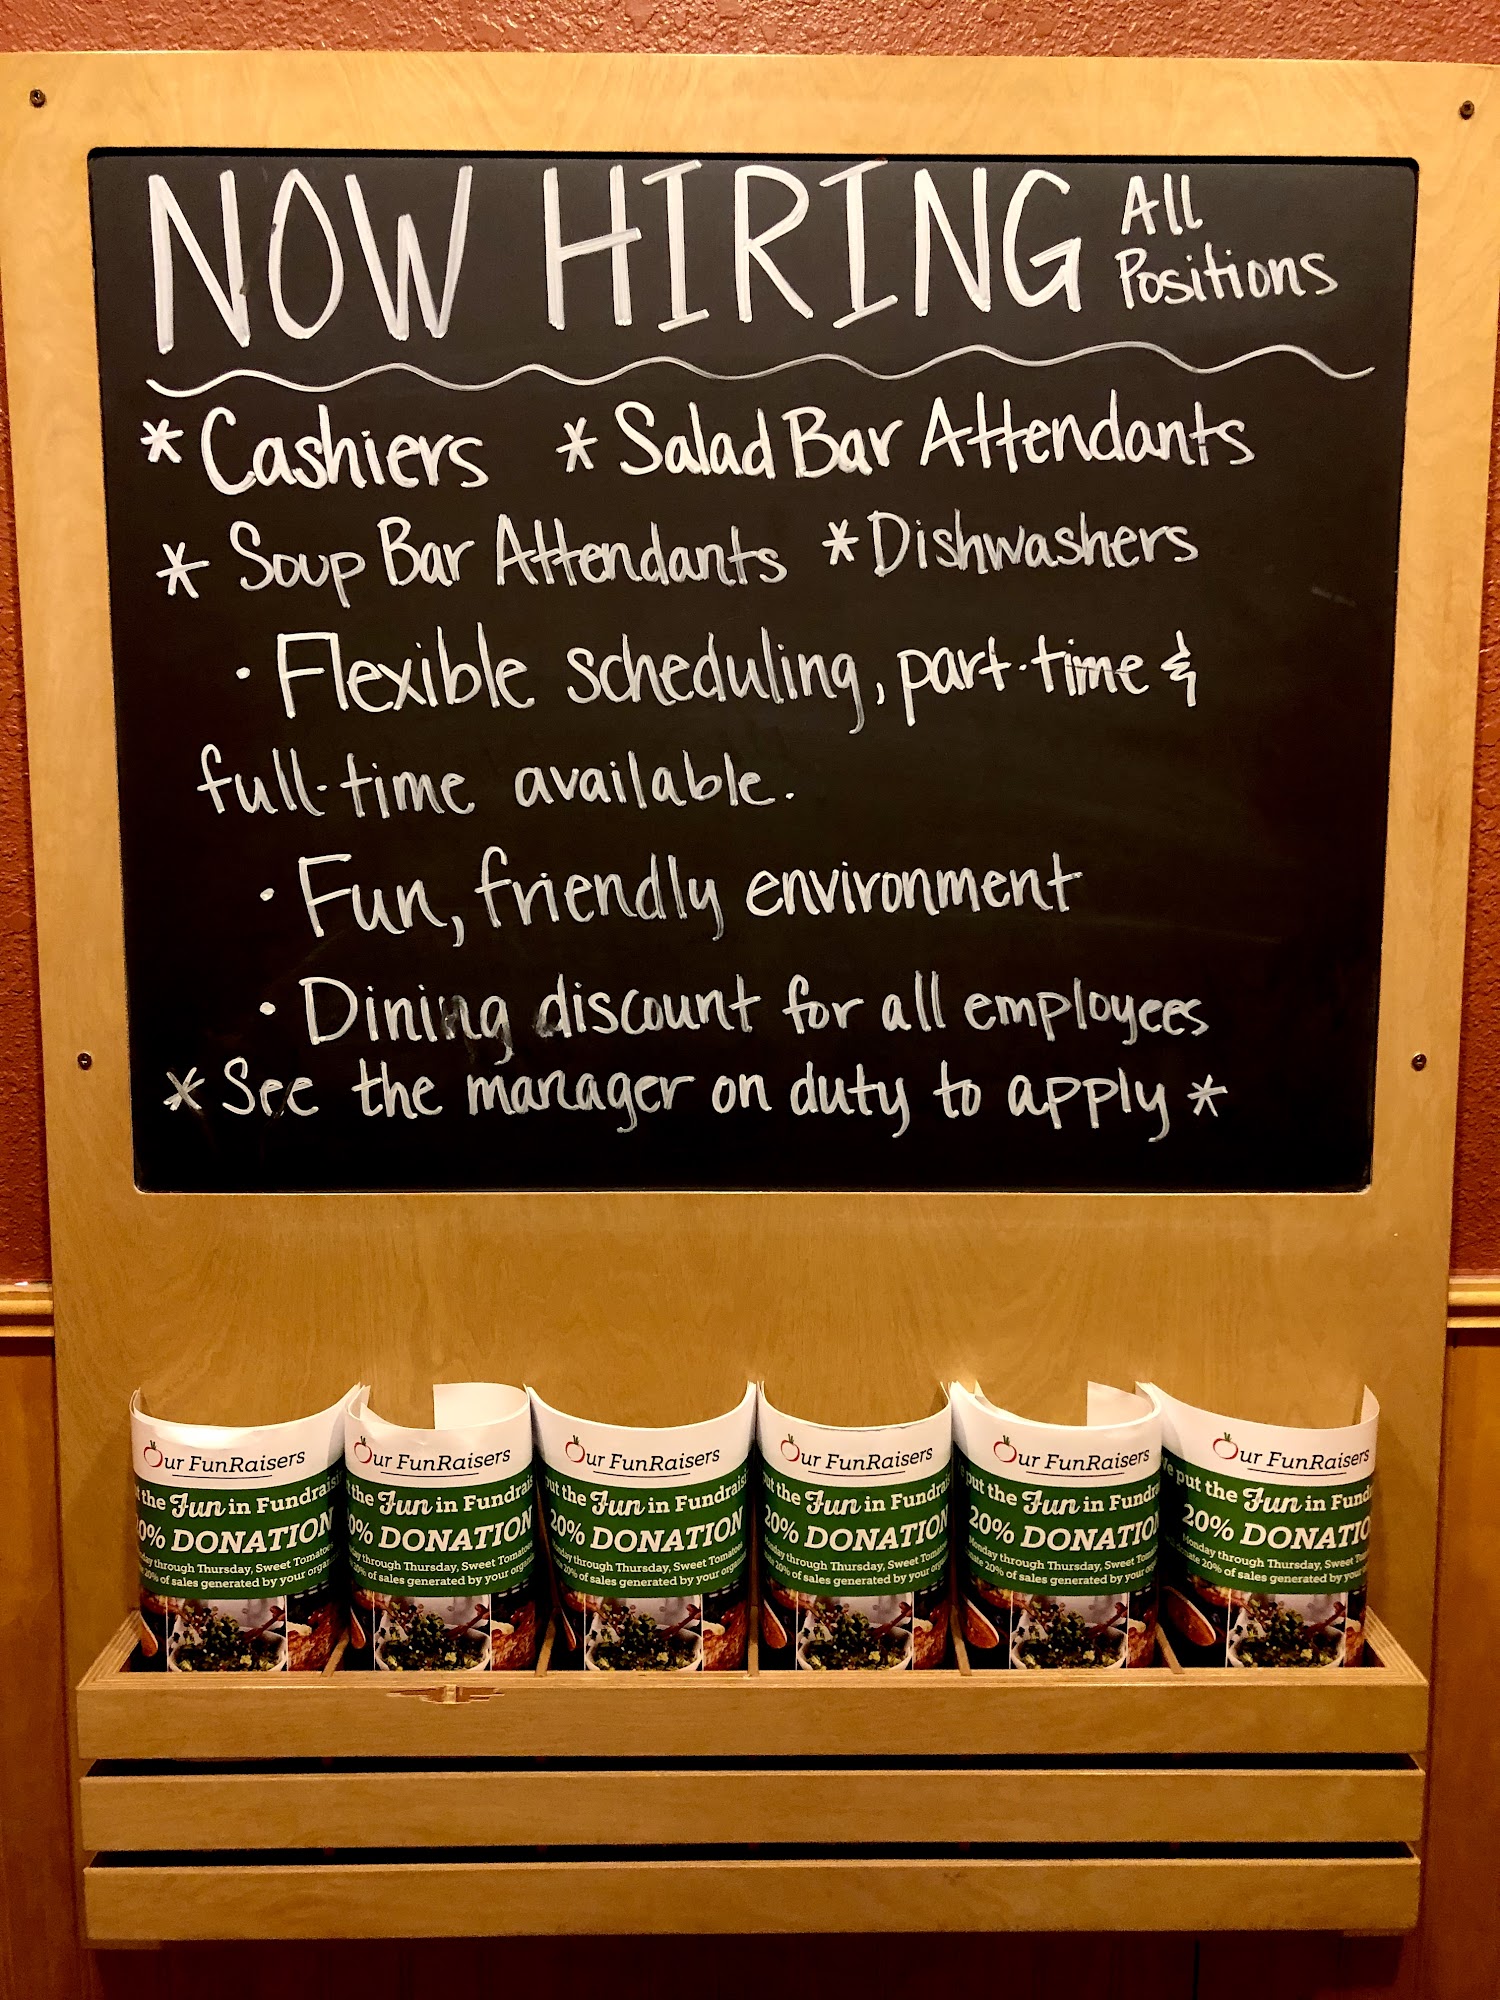 NOW HIRING All Positions
* Cashiers * Salad Bar Attendants
* Soup Bar Attendants * Dishwashers
· Flexible scheduling, part-time &
full-time available.
· Fun, friendly environment
· Dining discount for all employees
* See the manager on duty to apply *
Our FunRaisers
t the Fun in Fundrais
0% DONATION
day through Thursday, Sweet Tomato
20% of sales generated by your orga
Our FunRaisers
the Fun in Fundrais
0% DONATION
day through Thursday, Sweet Tomatoe
% of sales generated by your organ
Our FunRaisers
ut the Fun in Fundraisi
20% DONATION
day through Thursday, Sweet Tomato
20% of sales generated by your organi
Our FunRaisers
ut the Fun in Fundrai
20% DONATION
day through Thursday, Sweet Tomatoe
20% of sales generated by your orga
Our FunRaisers
put the Fun in Fundra
20% DONATIO
Monday through Thursday, Sweet Toma
nate 20% of sales generated by your o
Our FunRaisers
We put the Fun in Fund
20% DONATIO
Monday through Thursday, Sweet Tom
donate 20% of sales generated by your